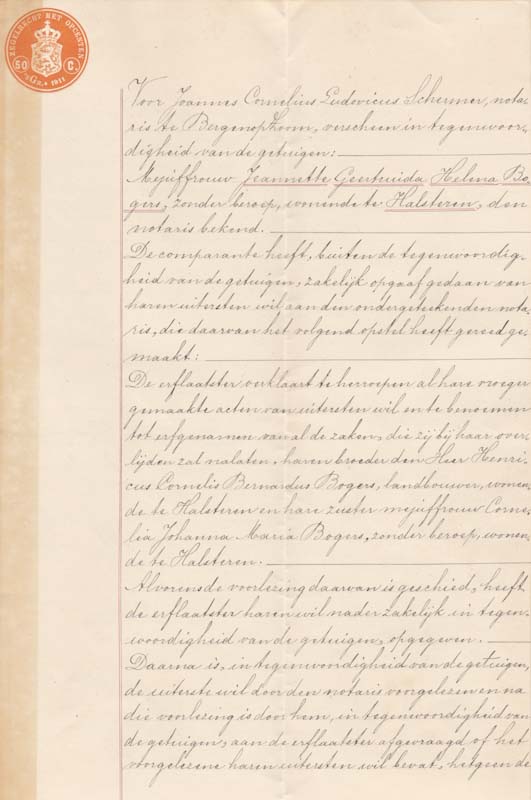 ZEGELRECHT MET OPCENTEN
50 C.
'sGR. 1911
Voor Joannes Cornelius Ludovicus Schermer, nota-
ris te Bergenopzoom, verscheen in tegenwoor-
digheid van de getuigen:
Mejuffrouw Jeannette Geertruida Helena Bo-
gers, zonder beroep, wonende te Halsteren, den
notaris bekend.
De comparante heeft, buiten de tegenwoordig-
heid van de getuigen, zakelijk opgaaf gedaan van
haren uitersten wil aan den ondergeteekenden nota-
ris, die daarvan het volgend opstel heeft gereed ge-
maakt:
De erflaatster verklaart te herroepen al hare vroeger
gemaakte acten van uitersten wil en te benoemen
tot erfgenamen van al de zaken, die zij bij haar over-
lijden zal nalaten, haren broeder den Heer Henri-
cus Cornelis Bernardus Bogers, landbouwer, wonen-
de te Halsteren en hare zuster mejuffrouw Corne-
lia Johanna Maria Bogers, zonder beroep, wonen-
de te Halsteren.
Alvorens de voorlezing daarvan is geschied, heeft
de erflaatster haren wil nader zakelijk in tegen-
woordigheid van de getuigen, opgegeven.
Daarna is, in tegenwoordigheid van de getuigen,
de uiterste wil door den notaris voorgelezen en na
die voorlezing is door hem, in tegenwoordigheid van
de getuigen, aan de erflaatster afgevraagd of het
voorgelezene haren uitersten wil bevat, hetgeen de